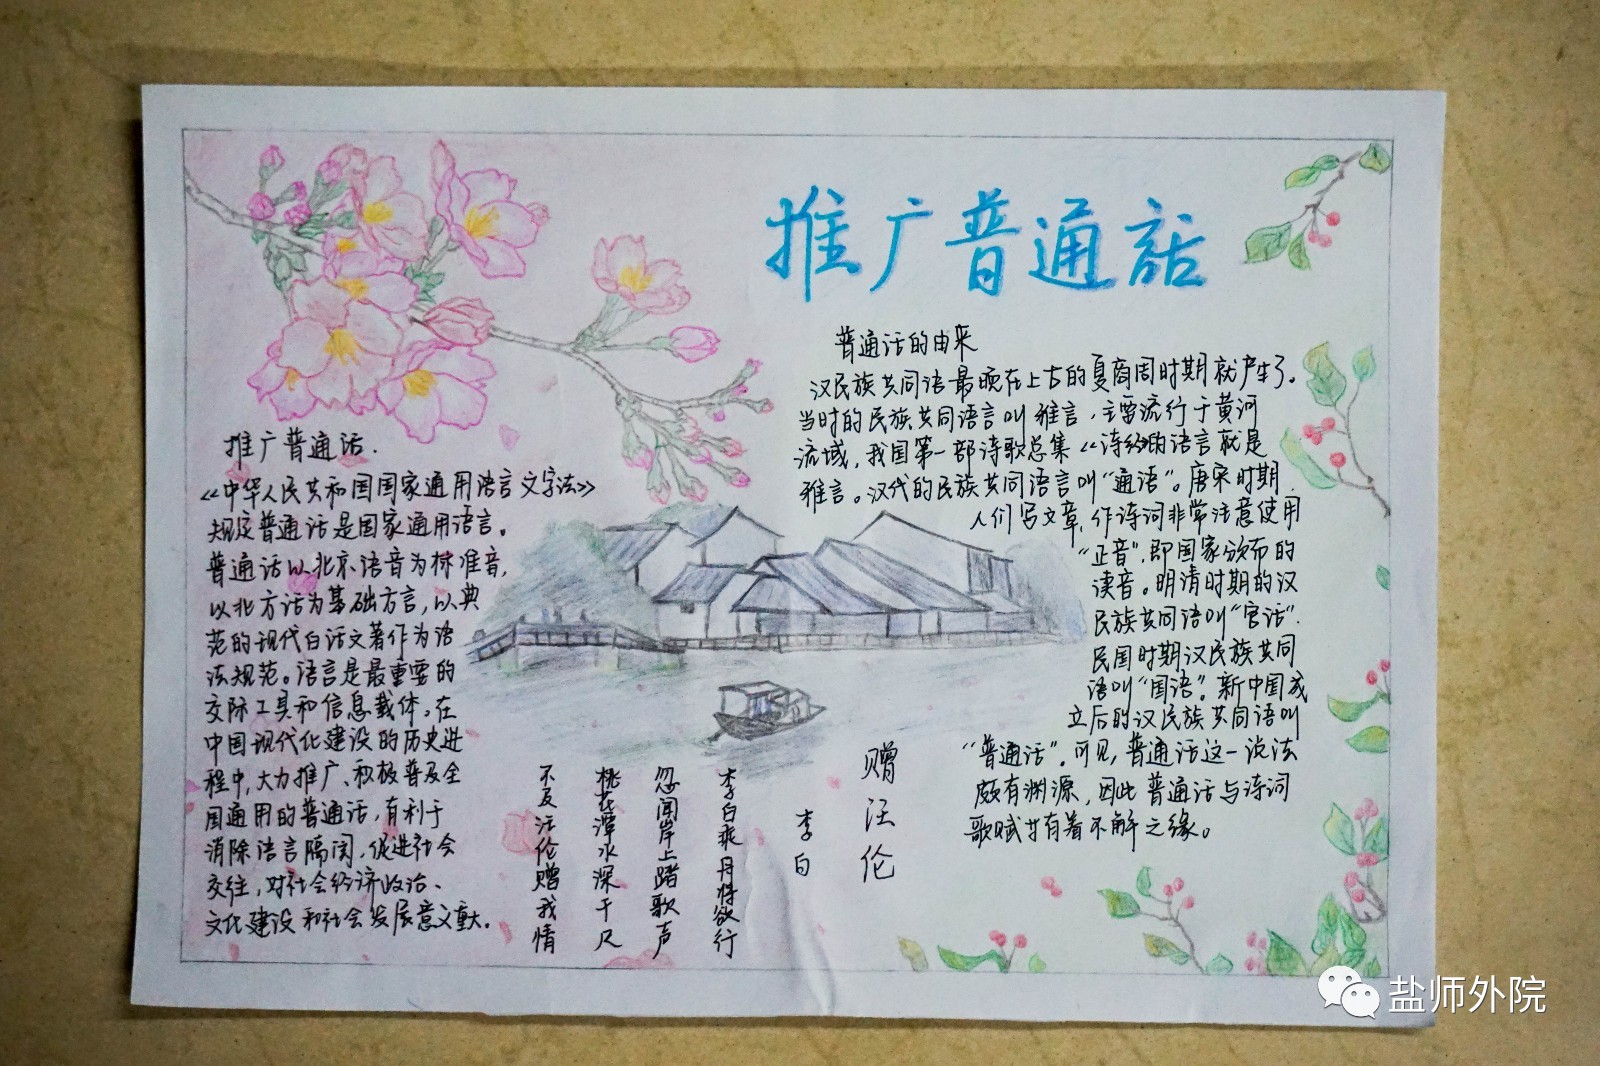 推广普通话
推广普通话.
《中华人民共和国国家通用语言文字法》
规定普通话是国家通用语言。
普通话以北京语音为标准音,
以北方话为基础方言,以典
范的现代白话文著作为语
法规范。语言是最重要的
交际工具和信息载体。在
中国现代化建设的历史进
程中,大力推广、积极普及全
国通用的普通话,有利于
消除语言隔阂,促进社会
交往,对社会经济政治、
文化建设和社会发展意义重大。
普通话的由来
汉民族共同语最晚在上古的夏商周时期就产生了。
当时的民族共同语言叫雅言,主要流行于黄河
流域,我国第一部诗歌总集《诗经》的语言就是
雅言。汉代的民族共同语言叫“通语”。唐宋时期
人们写文章,作诗词非常注意使用
“正音”,即国家颁布的
读音。明清时期的汉
民族共同语叫“官话”.
民国时期汉民族共同
语叫“国语”。新中国成
立后的汉民族共同语叫
“普通话”。可见,普通话这一说法
颇有渊源,因此普通话与诗词
歌赋甘有着不解之缘。
赠汪伦
李白
李白乘丹将欲行
忽闻岸上踏歌声
桃花潭水深千尺
不及汪伦赠我情
盐师外院